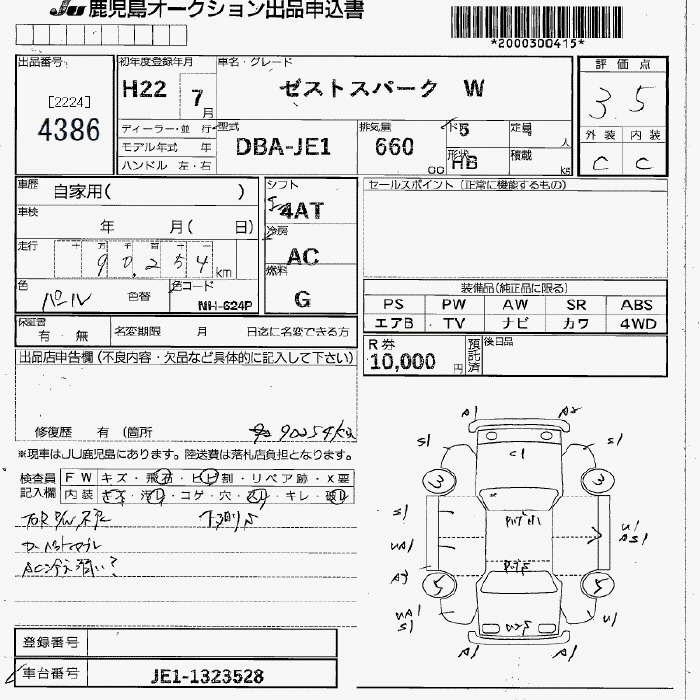 JU 鹿児島オークション出品申込書
*2000300415*
出品番号
[2224]
4386
初年度登録年月
H22 7月
車名・グレード
ゼストスパーク W
評価点
3 5
外装 内装
C C
ディーラー・並行
モデル年式 年
ハンドル 左・右
型式
DBA-JE1
排気量
660
cc
ド 5
形状
HB
定員 人
積載 kg
車歴
自家用( )
車検
年 月( 日)
走行
十 万 千 百 十
90,254 km
色
パール
色替
色コード
NH-624P
シフト
4AT
冷房
AC
燃料
G
セールスポイント(正常に機能するもの)
装備品(純正品に限る)
PS PW AW SR ABS
エアB TV ナビ カワ 4WD
保証書
有・無
名変期限 月 日迄に名変できる方
R券
10,000円
預託済
後日品
出品店申告欄(不良内容・欠品など具体的に記入して下さい)
修復歴 有(箇所
90254km
※現車はJU鹿児島にあります。陸送費は落札店負担となります。
検査員
記入欄
FW キズ・飛石・ヒビ割・リペア跡・X要
内装 キズ・汚れ・コゲ・穴・スレ・キレ・破れ
AC冷え弱い?
A1 A2
S1 C1 S1
3 3
S1 U1
UA1 AS1
5 5
UA1 U1
S1
A1 A1
登録番号
車台番号 JE1-1323528